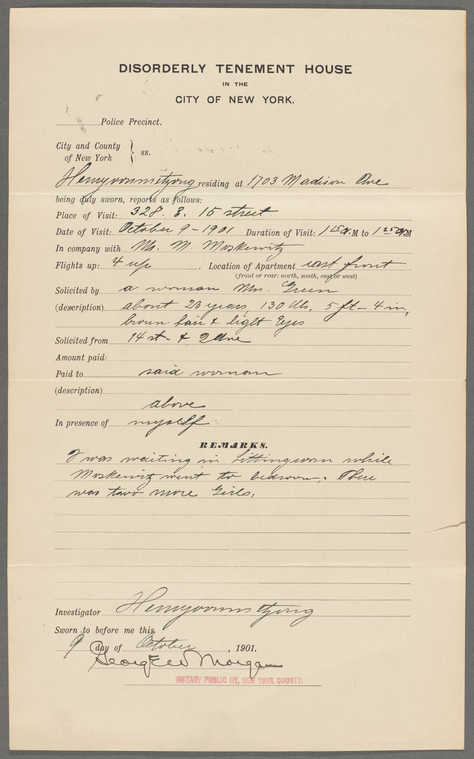 DISORDERLY TENEMENT HOUSE
IN THE
CITY OF NEW YORK.
Police Precinct.
City and County
of New York } ss.
residing at 1703 Madison Ave
being duly sworn, reports as follows:
Place of Visit: 328. E. 15 street
Date of Visit: October 9-1901 Duration of Visit: M to M
In company with Mr. M. Moskewitz
Flights up: 4 up. Location of Apartment east front
(front or rear: north, south, east or west)
Solicited by a woman Mrs. Green
(description) about 23 years, 130 lbs, 5 ft-4 in,
brown hair & light Eyes
Solicited from 14 st & 2 Ave
Amount paid:
Paid to said woman
(description)
above
In presence of myself
REMARKS.
I was waiting in Sittingroom while
Moskewitz went to bedroom. There
was two more Girls.
Investigator
Sworn to before me this
9 day of October, 1901.
George W Morgan
NOTARY PUBLIC NEW YORK COUNTY.